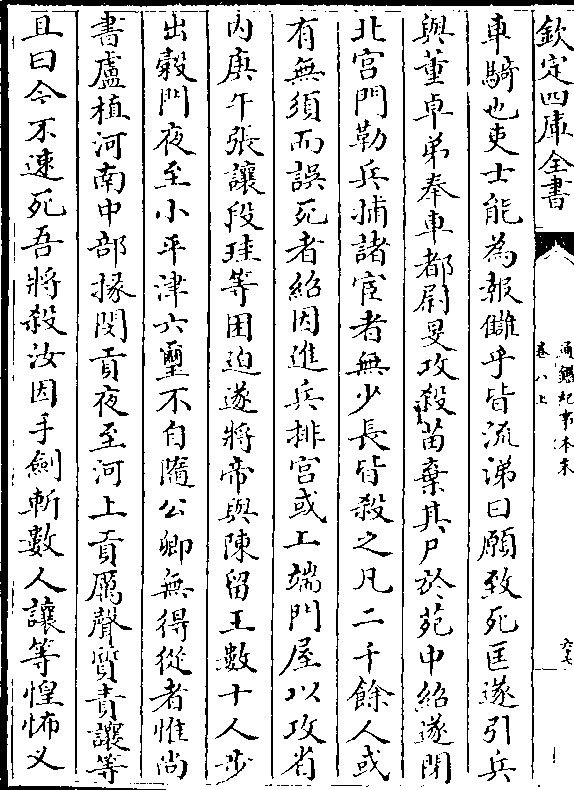 欽定四庫全書
通鑑紀事本末
卷八上
六七
車騎也吏士能為報讎乎皆流涕曰願致死匡遂引兵
與董卓弟奉車都尉旻攻殺苗棄其尸於苑中紹遂閉
北宫門勒兵捕諸宦者無少長皆殺之凡二千餘人或
有無須而誤死者紹因進兵排宫或上端門屋以攻省
内庚午張讓段珪等困迫遂將帝與陳留王數十人步
出穀門夜至小平津六璽不自隨公卿無得從者惟尚
書盧植河南中部掾閔貢夜至河上貢厲聲質責讓等
且曰今不速死吾將殺汝因手劍斬數人讓等惶怖乂